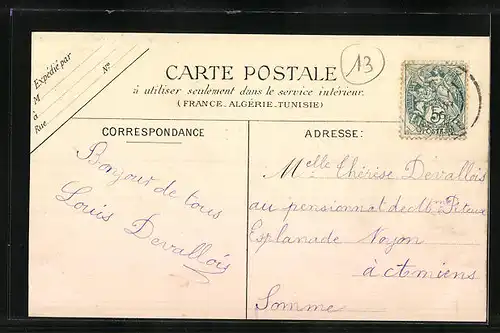 Expédié par
M Nº
à
Rue
13
CARTE POSTALE
à utiliser seulement dans le service intérieur.
(FRANCE-ALGÉRIE-TUNISIE)
5c
POSTES
CORRESPONDANCE
ADRESSE:
Bonjour de tous
Louis Devallois
Melle Thérèse Devallois
au pensionnat de Mme
Esplanade Noyon
à Amiens
Somme